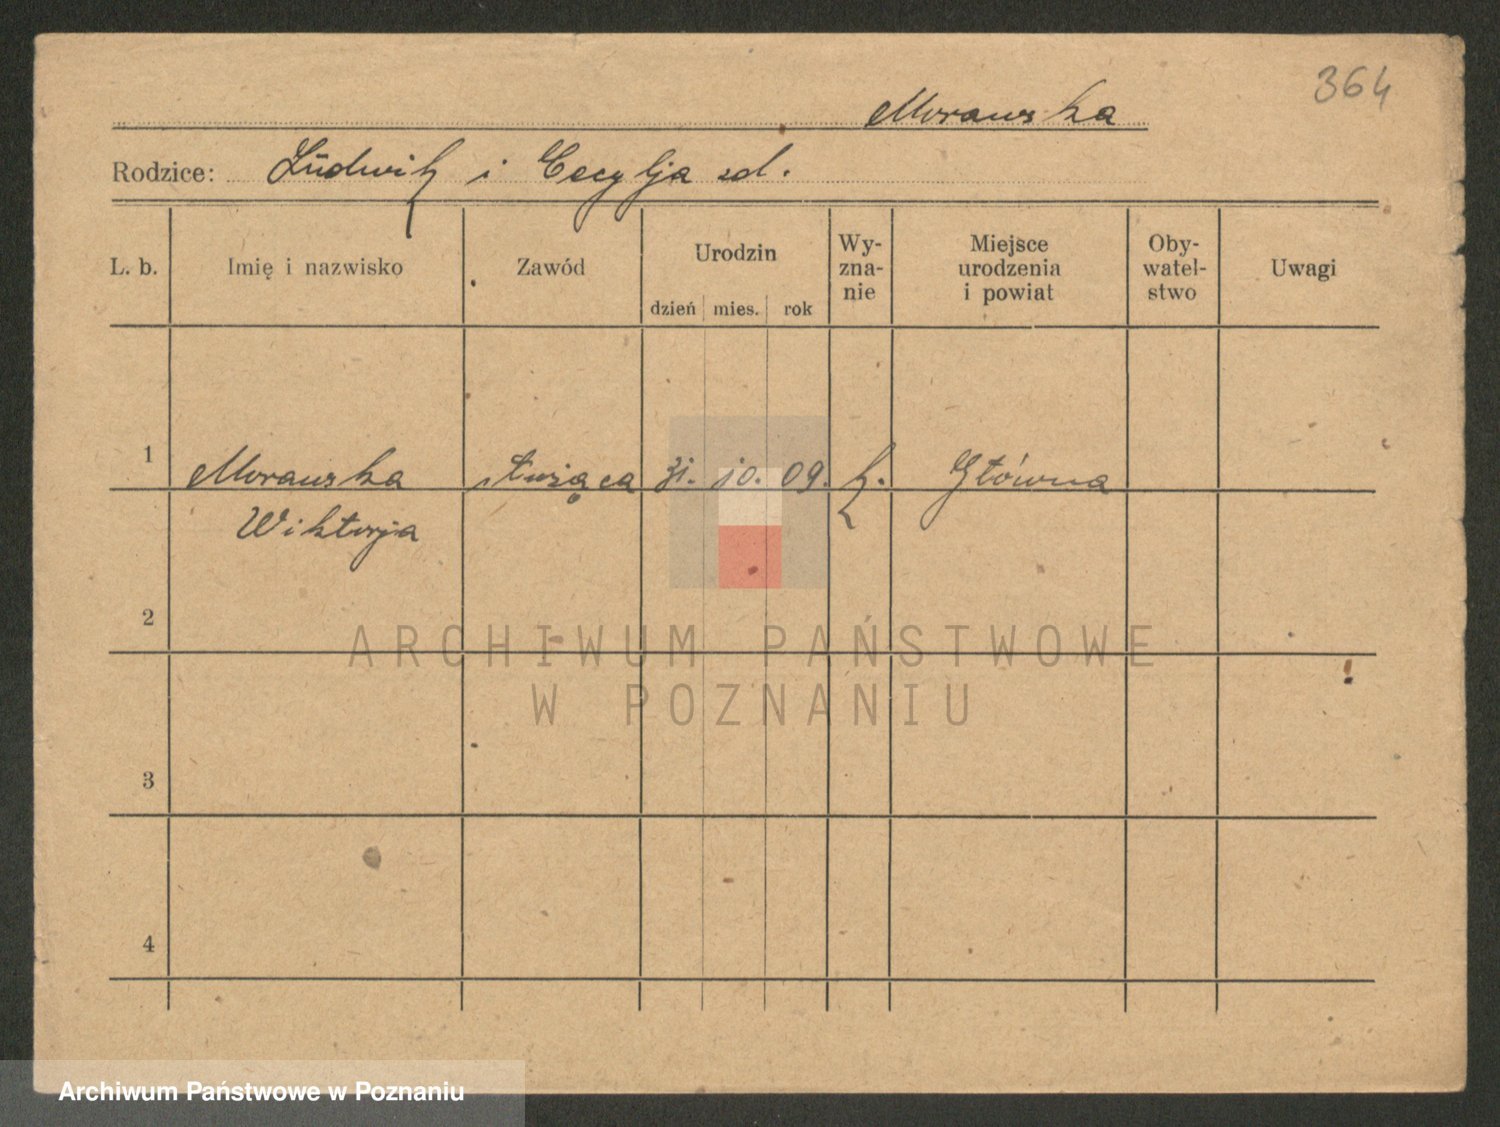 364
Morawska
Rodzice: Ludwik i Cecylja zd.
L. b.
Imię i nazwisko
Zawód
Urodzin
dzień mies. rok
Wy-
zna-
nie
Miejsce
urodzenia
i powiat
Oby-
watel-
stwo
Uwagi
1 Morawska służąca 31. 10. 09. k. Główna
Wiktorja
2
3
4
ARCHIWUM PAŃSTWOWE
W POZNANIU
Archiwum Państwowe w Poznaniu